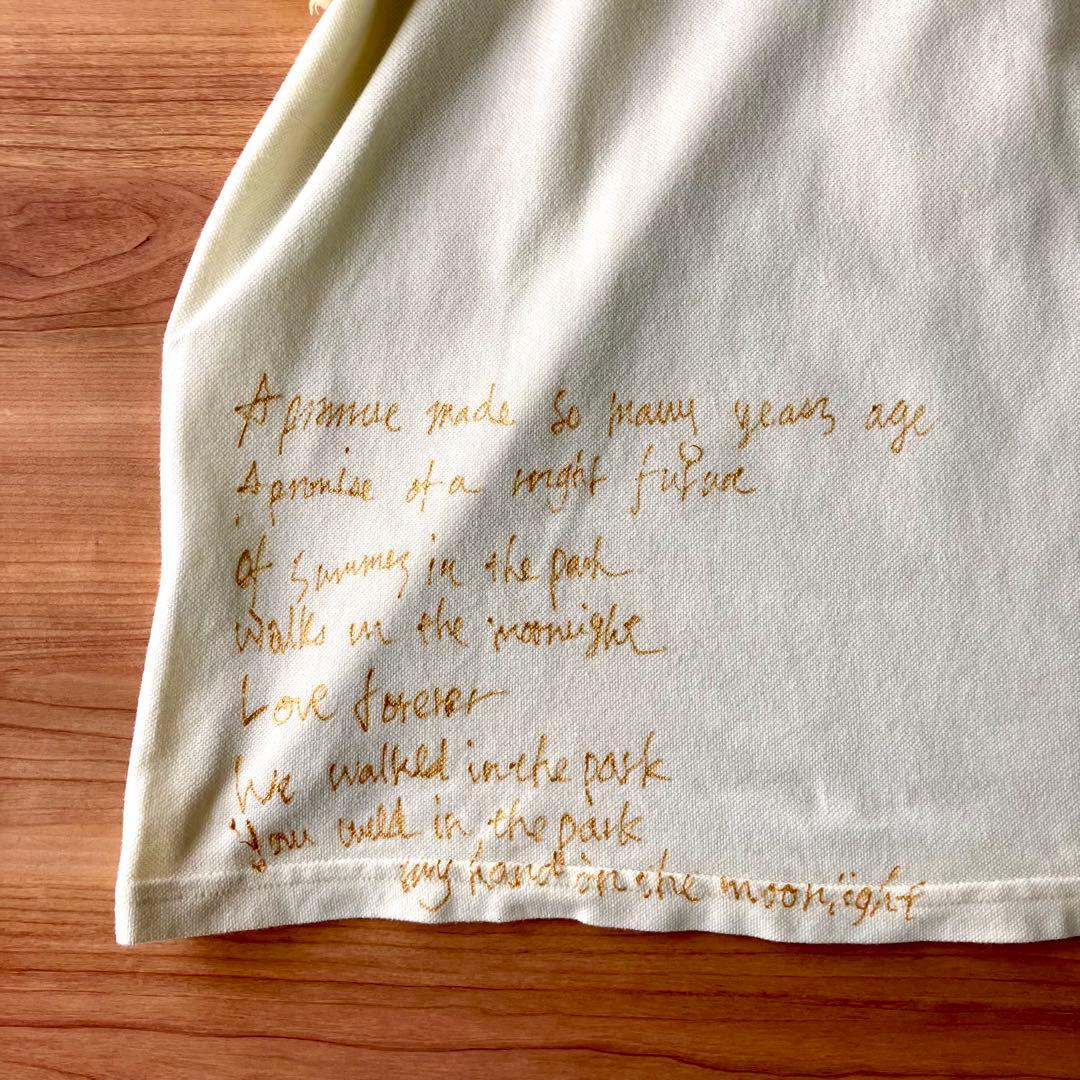 A promise made so many years age
A promise of a night future
of summer in the park
walks in the moonlight
Love forever
We walked in the park
You in the park
my hand in the moonlight